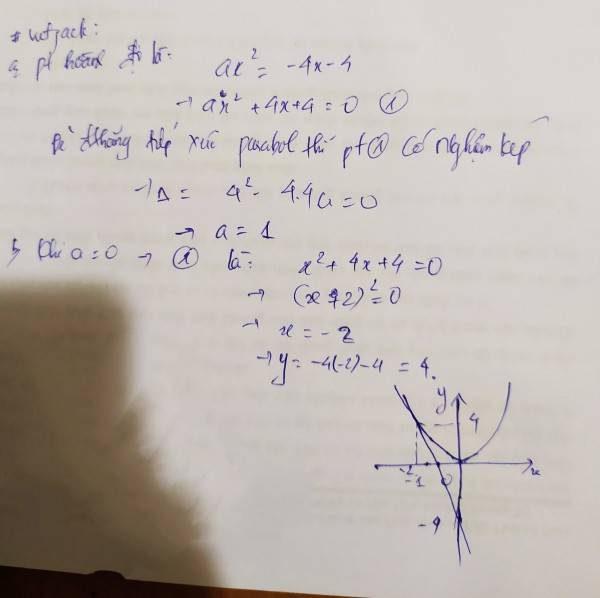 a, pt hoành độ là:
ax² = -4x-4
→ ax² + 4x+4 = 0 ①
Để đthẳng tiếp xúc parabol thì pt ① có nghiệm kép
→ Δ = 4² - 4.4a = 0
→ a = 1
b, Khi a = 0 → ① là: x² + 4x + 4 = 0
→ (x+2)² = 0
→ x = -2
→ y = -4(-2)-4 = 4.
y
4
-2
-1
0
x
-4